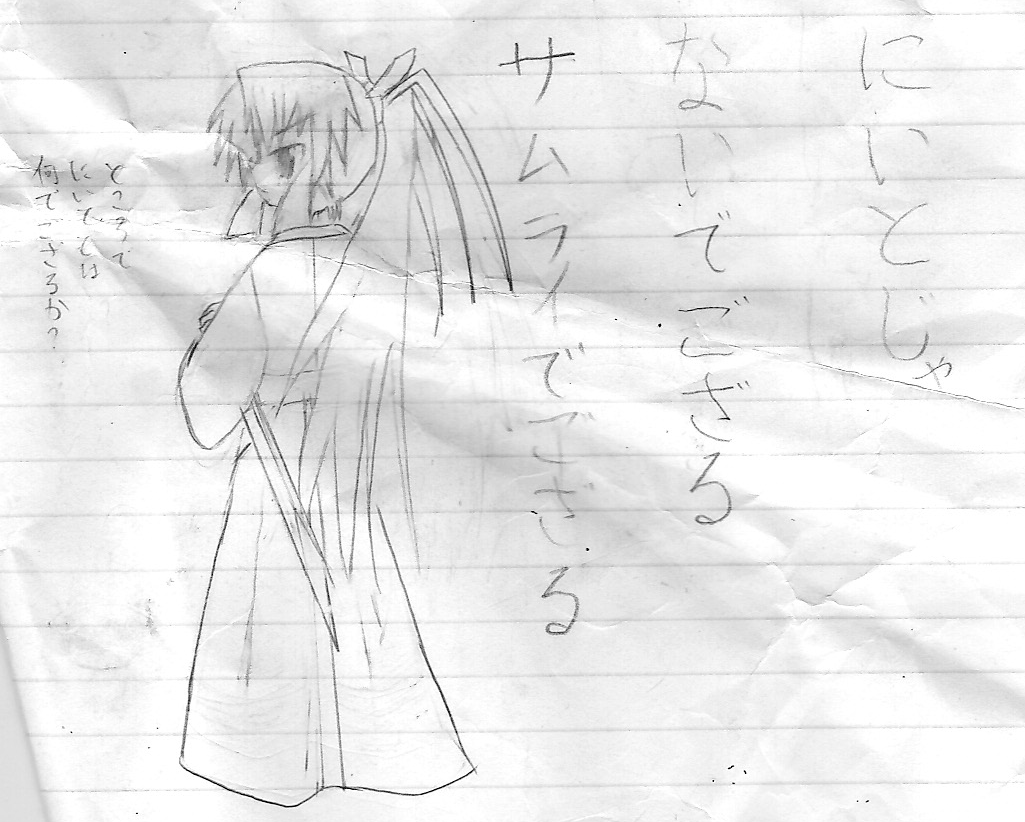 にいとじゃ
ないでござる
サムライでござる
ところで
にいてとは
何でござるか？